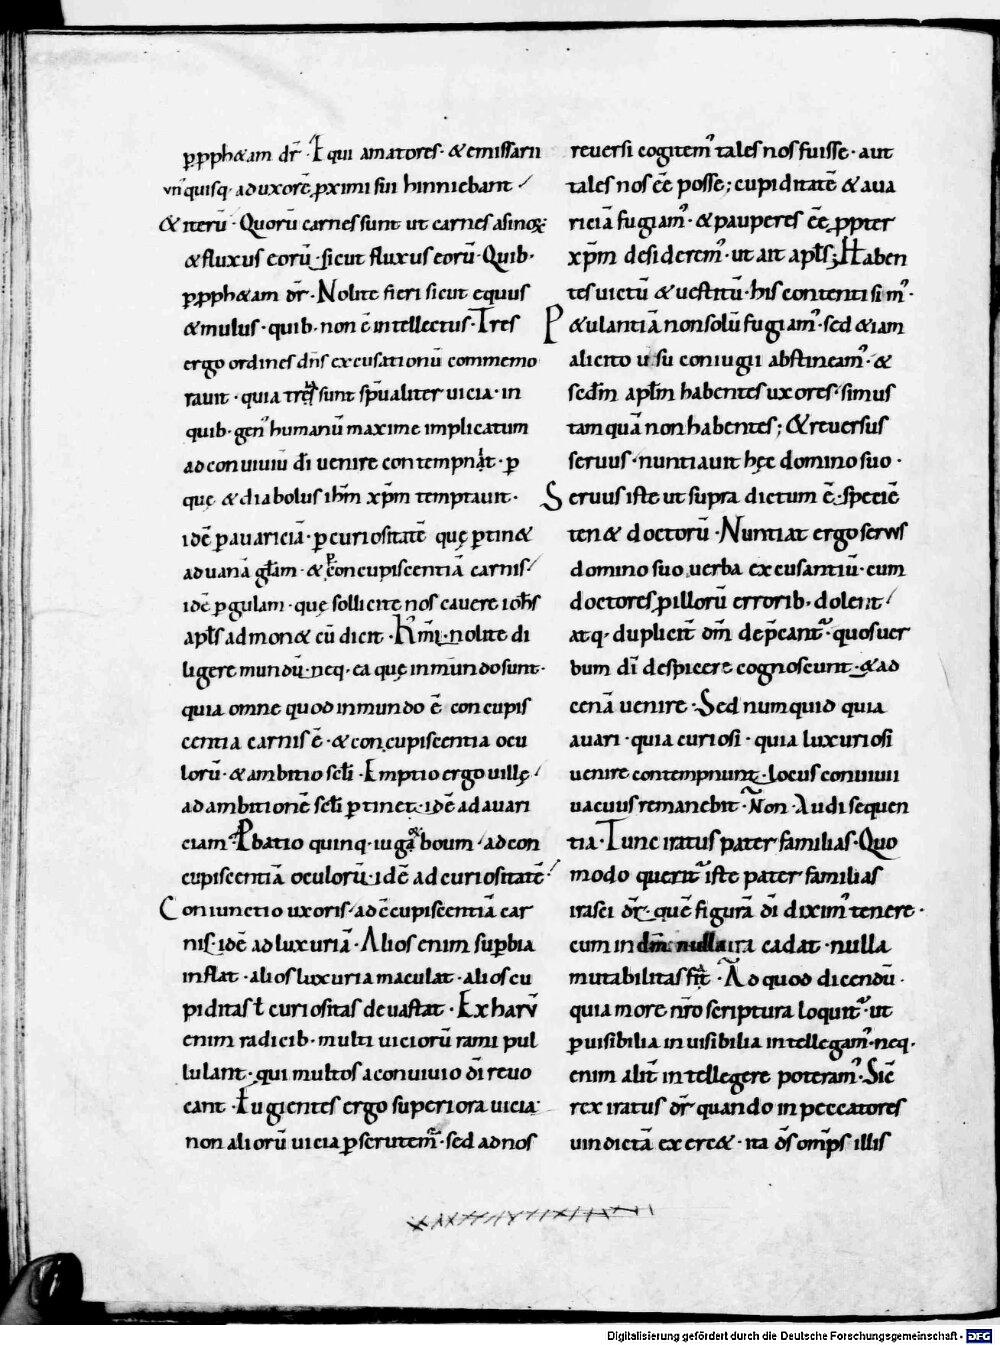 p̱pphetam dr̄ · Equi amatores · & emissarii
vn'quisq· ad uxorē p̱ximi sui hinniebant ·
& iterū · Quorū carnes sunt ut carnes asinoꝝ
& fluxus eorū · sicut fluxus eorū · Quib·
p̱pph&am dr̄ · Nolite fieri sicut equus
& mulus · quib· non ē intellectus · Tres
ergo ordines dn̄s excusationū commemo
rauit · quia tria sunt sp̄ualiter uicia · in
quib· gen' humanū maxime implicatum
ad conuiuiū dī uenire contempnit · p̱
quę & diabolus ihm̄ xp̄m temptauit ·
idē p̱ auariciā · p̱ curiositatē quę p̱tin&
ad uanā gl̄am · & p̱ concupiscentiā carnis ·
idē p̱ gulam · quę sollicite nos cauere ioh̄s
apl̄s admon& cū dicit · Kr̄mi · nolite di
ligere mundū · neq· ea quę in mundo sunt ·
quia omne quod in mundo ē concupis
centia carnis ē · & concupiscentia ocu
lorū · & ambitio sc̄li · Emptio ergo uillę ·
ad ambitionē sc̄li p̱tinet · idē ad auari
ciam · Ꝓbatio quinq· iuga boum · ad con
cupiscentiā oculorū · idē ad curiositatē ·
Coniunctio uxoris · ad c̄cupiscentiā car
nis · idē ad luxuriā · Alios enim sup̱bia
inflat · alios luxuria maculat · alios cu
piditas ł curiositas deuastat · Ex harū
enim radicib· multi uiciorū rami pul
lulant · qui multos a conuiuio dī reuo
cant · Fugientes ergo superiora uicia
non aliorū uicia p̱scrutem' · sed ad nos
reuersi cogitem' tales nos fuisse · aut
tales nos c̄e posse ; cupiditatē & aua
riciā fugiam' · & pauperes c̄e ꝓpter
xp̄m desiderem' · ut ait apl̄s ; Haben
tes uictū & uestitū · his contenti sim' ·
P&ulantiā non solū fugiam' · sed &iam
a licito usu coniugii abstineam' · &
sedm̄ apl̄m habentes uxores · simus
tamquā non habentes ; & reuersus
seruus · nuntiauit hęc domino suo ·
Seruus iste ut supra dictum ē · speciē
ten& doctorū · Nuntiat ergo seruus
domino suo uerba excusantiū · cum
doctores p̱ illorū errorib· dolent ·
atq· duplicit̄ dm̄ dep̄cant' · quos uer
bum dī despicere cognoscunt · & ad
cenā uenire · Sed numquid quia
auari · quia curiosi · quia luxuriosi
uenire contempnunt · locus conuiuii
uacuus remanebit · Non · Audi sequen
tia · Tunc iratus pater familias · Quo
modo querit' iste pater familias
irasci dr̄ · quē figurā dī dixim' tenere ·
cum in dm̄ nulla ira cadat · nulla
mutabilitas sit · Ad quod dicendū ·
quia more nr̄o scriptura loquit' · ut
p̱ uisibilia inuisibilia intellegam' · neq·
enim alit̄ intellegere poteram' · Sic̄
rex iratus dr̄ quando in peccatores
uindictā exerc& · ita dn̄s omp̄s illis